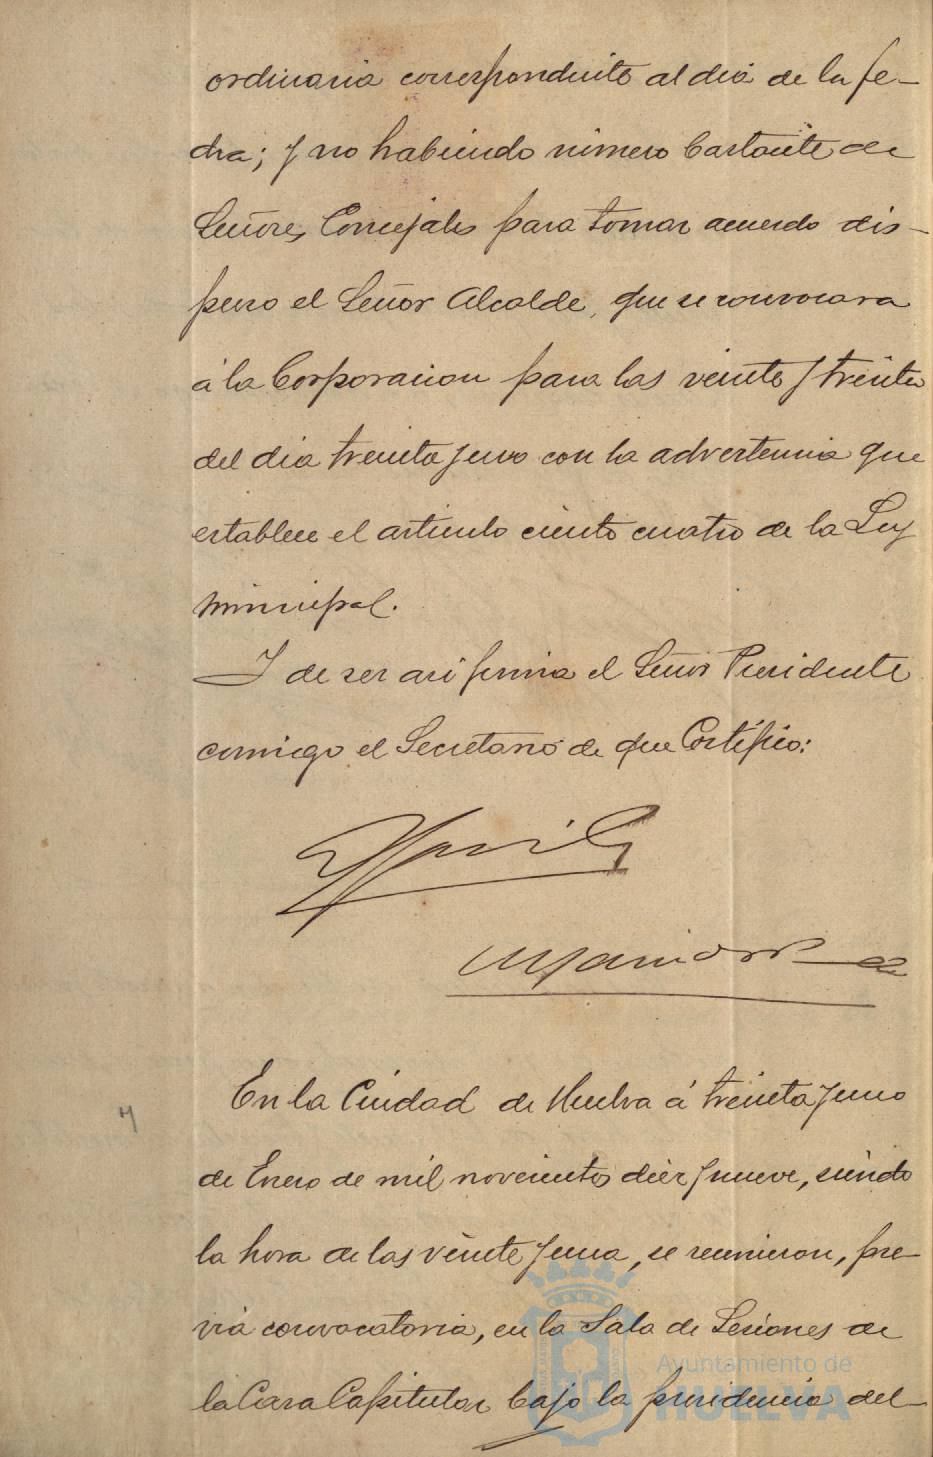 ordinaria correspondiente al dia de la fe-
cha; y no habiendo número bastante de
Señores Concejales para tomar acuerdo dis-
puso el Señor Alcalde, que se convocara
á la Corporacion para las veinte y treinta
del dia treinta y uno con la advertencia que
establece el articulo ciento cuatro de la Ley
Municipal.
Y de ser asi firma el Señor Presidente
conmigo el Secretario de que Certifico:
En la Ciudad de Huelva á treinta y uno
de Enero de mil novecientos diez y nueve, siendo
la hora de las veinte y una, se reunieron, pre-
via convocatoria, en la Sala de Sesiones de
la Casa Capitular bajo la presidencia del
Ayuntamiento de
HUELVA